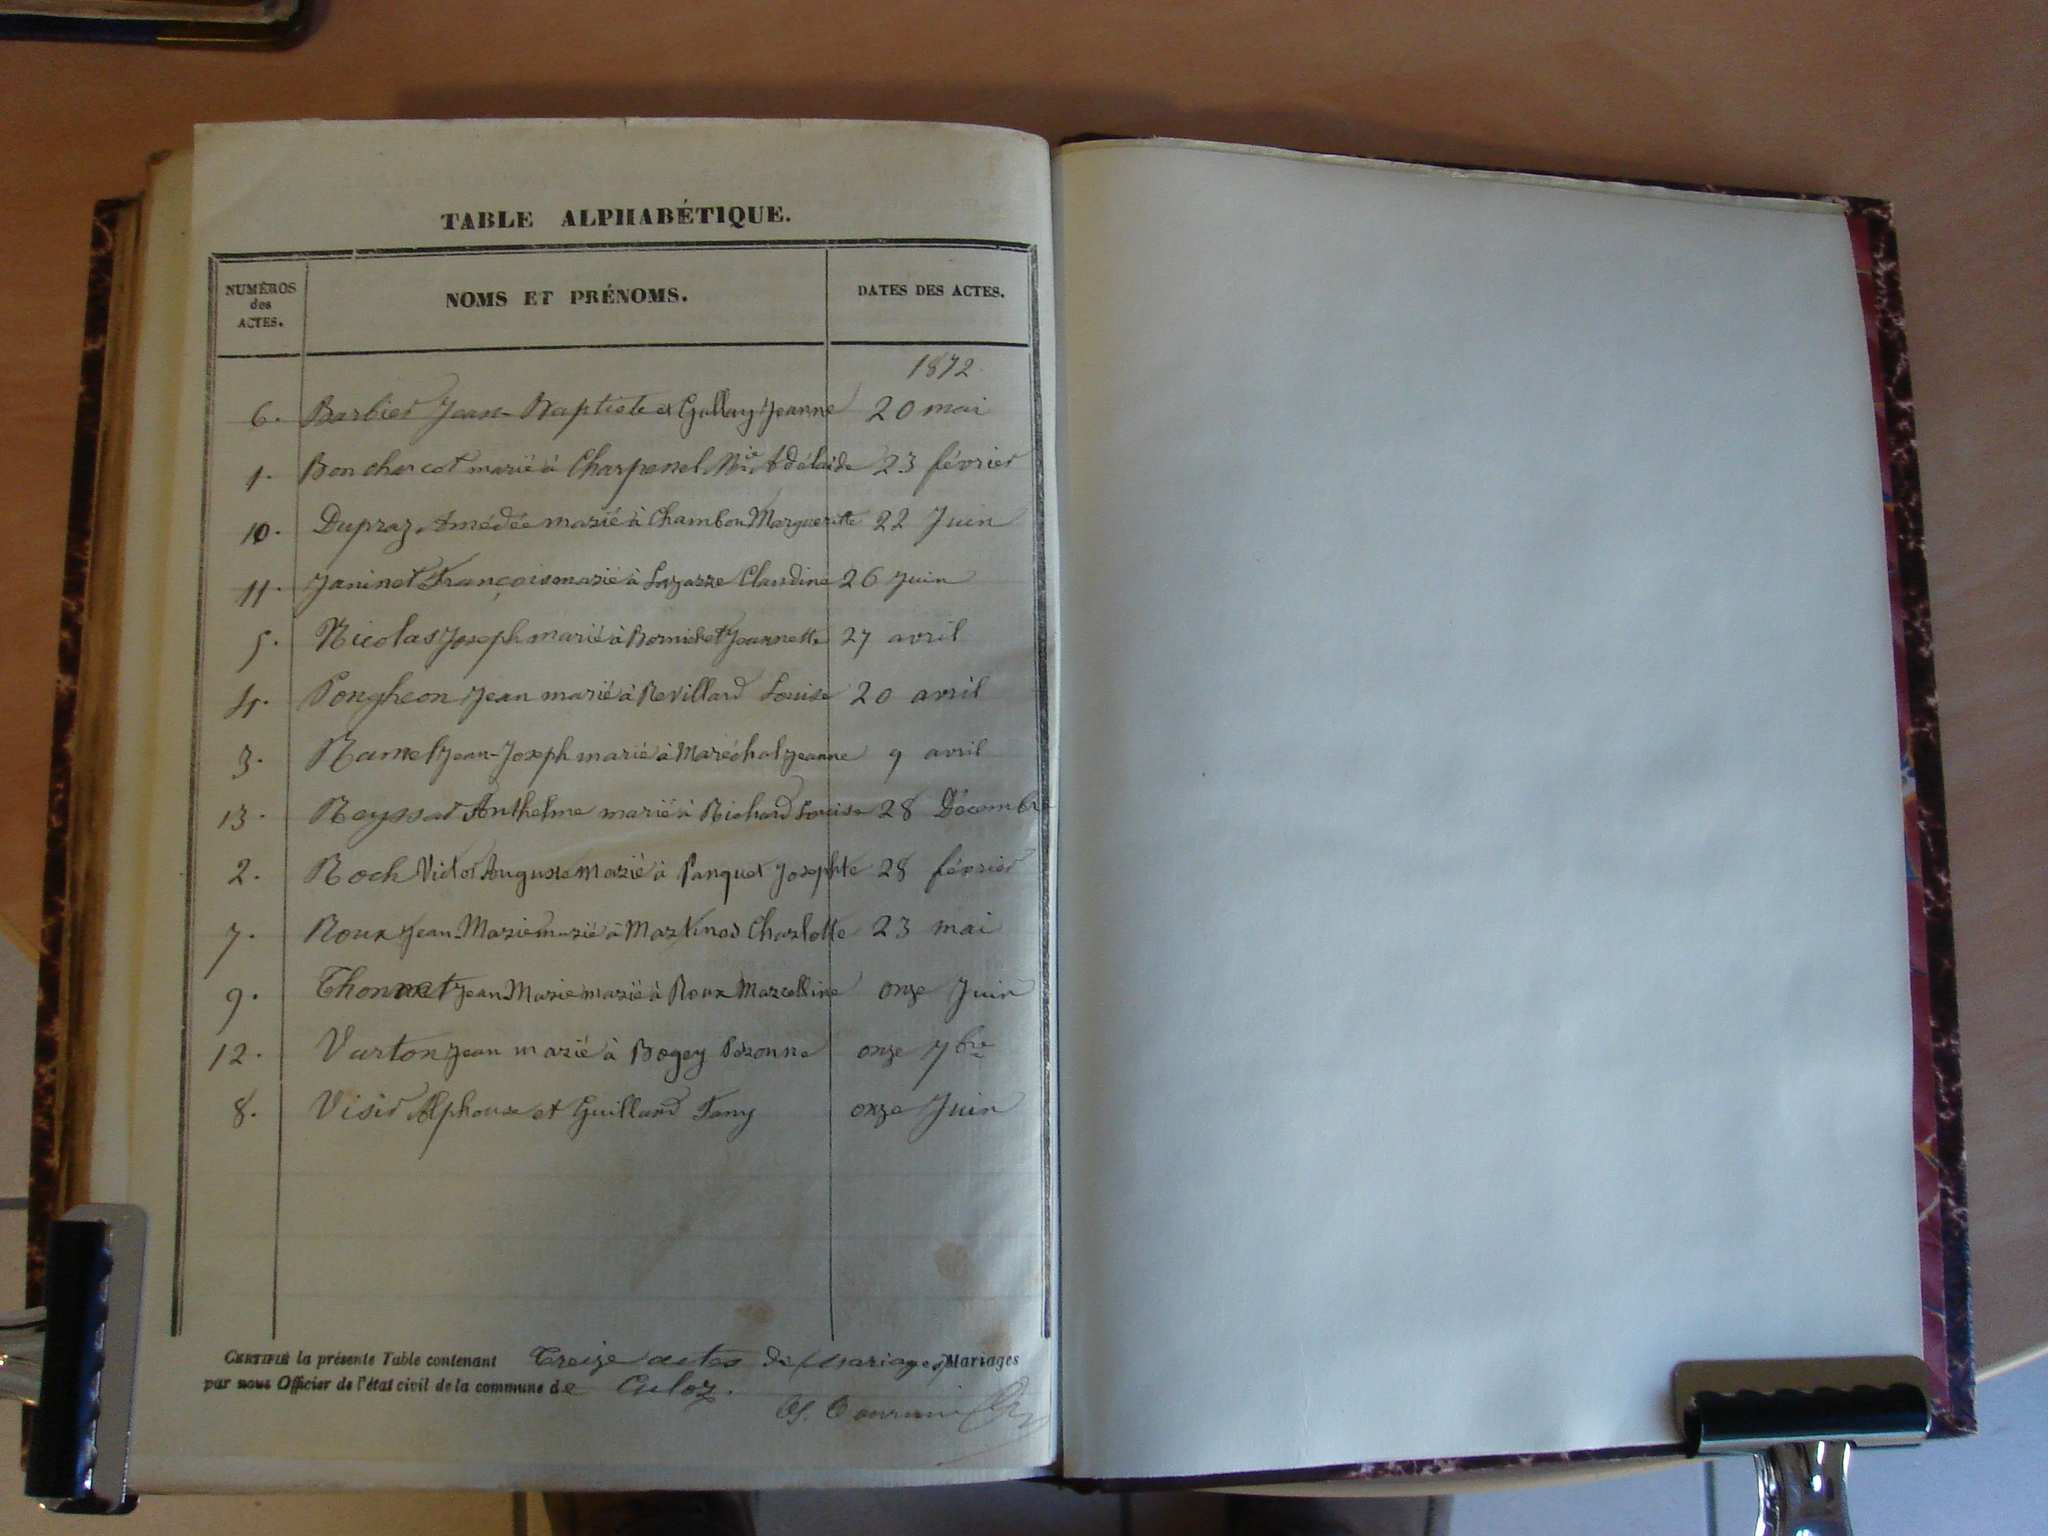 TABLE ALPHABÉTIQUE.
NUMÉROS des ACTES. NOMS ET PRÉNOMS. DATES DES ACTES.
1872.
6. Barbier Jean-Baptiste et Gallay Jeanne 20 mai
1. Bon charcot marié à Charpenel Mie Adélaide 23 février
10. Dupraz Amédée marié à Chambon Marguerite 22 Juin
11. Janinet François marié à Lazarre Claudine 26 Juin
5. Nicolas Joseph marié à Bornichet Jeannette 27 avril
4. Pongheon Jean marié à Revillard Louise 20 avril
3. Ramel Jean-Joseph marié à Maréchal Jeanne 9 avril
13. Reyssat Anthelme marié à Richard Louise 28 Décembre
2. Roch Victor Auguste marié à Panquet Josephte 28 février
7. Roux Jean-Marie marié à Martines Charlotte 23 mai
9. Thonnet Jean Marie marié à Roux Marcelline onze Juin
12. Varton Jean marié à Bogey Peronne onze 7bre
8. Visid Alphonse et Guilland Fany onze Juin
CERTIFIÉ la présente Table contenant Treize actes de Mariages Mariages
par nous Officier de l'état civil de la commune de Culoz.